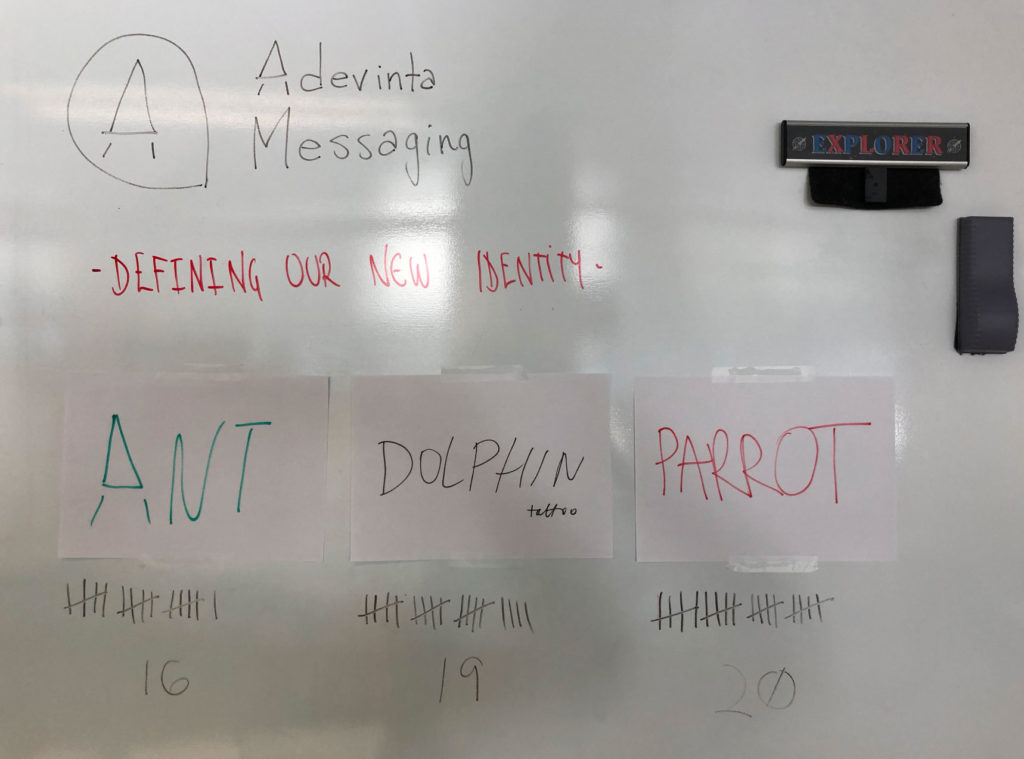 A
Adevinta
Messaging
EXPLORER
- DEFINING OUR NEW IDENTITY -
ANT
DOLPHIN
tattoo
PARROT
16
19
20